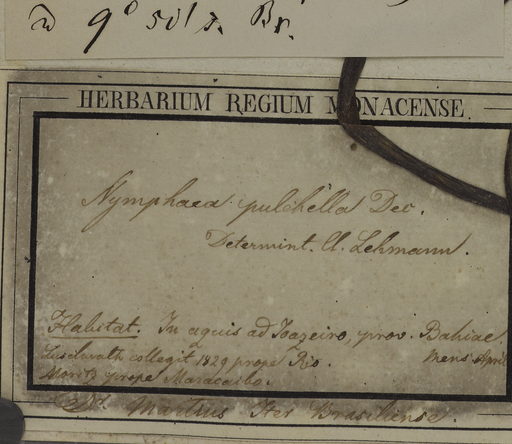 HERBARIUM REGIUM MONACENSE
Nymphaea pulchella Dec.
Determint. Cl. Lehmann.
Habitat. In aquis ad Joazeiro, prov. Bahiae.
Luschnath collegit 1829 prope Rio. Mens April
Moritz prope Maracaibo.
Dr. Martius Iter Brasiliense.